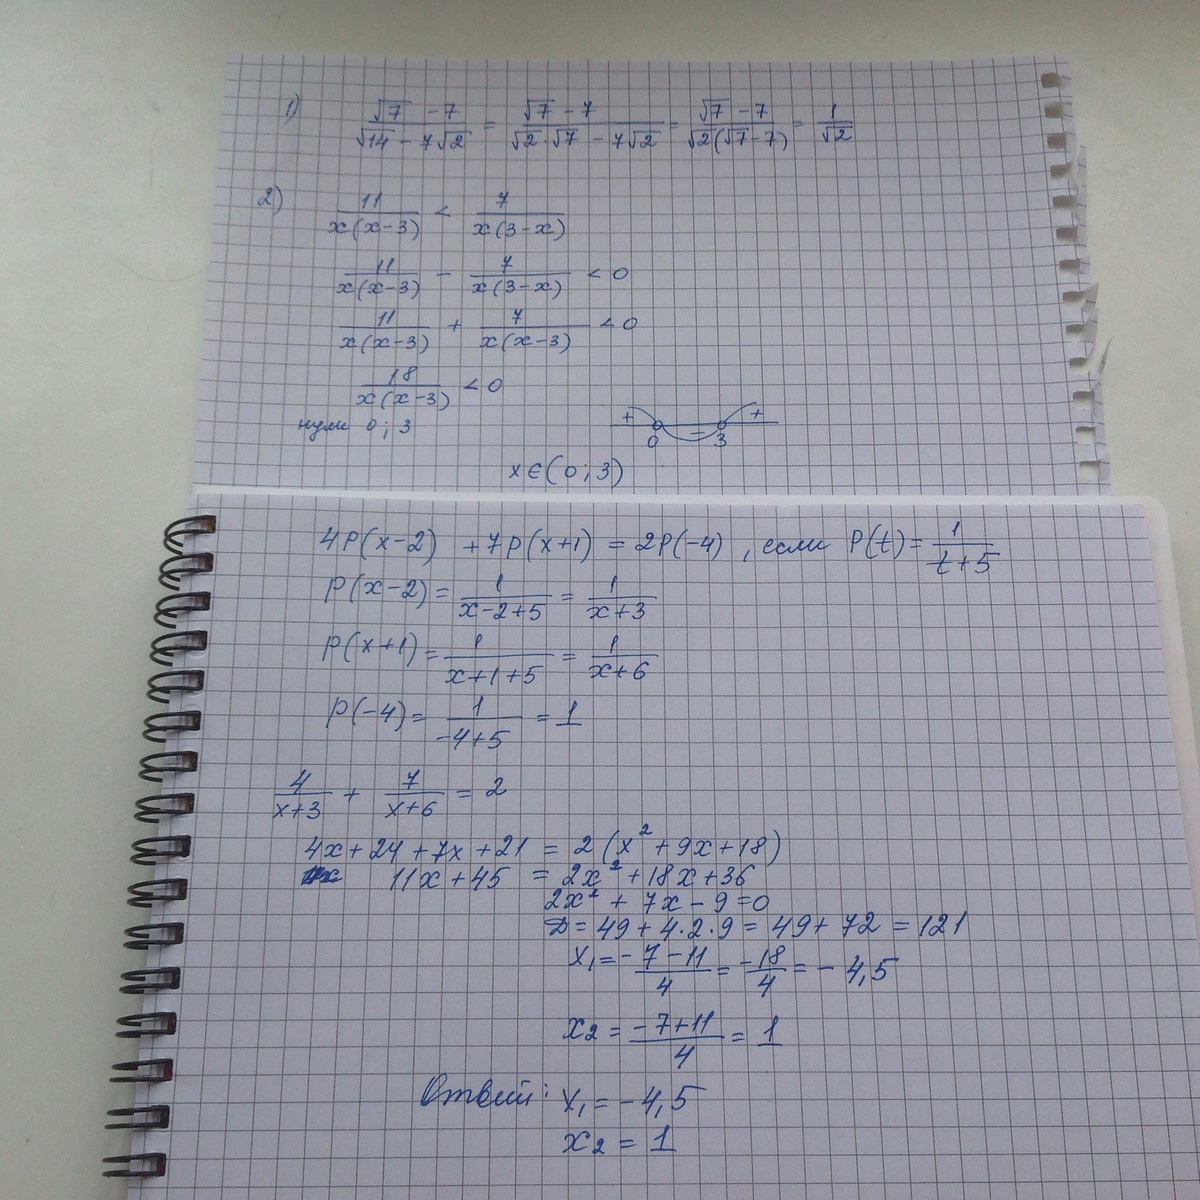 1) (√7 - 7)/(√14 - 7√2) = (√7 - 7)/(√2·√7 - 7√2) = (√7 - 7)/(√2(√7-7)) = 1/√2
2) 11/(x(x-3)) < 7/(x(3-x))
11/(x(x-3)) - 7/(x(3-x)) < 0
11/(x(x-3)) + 7/(x(x-3)) < 0
18/(x(x-3)) < 0
нули 0; 3
+ - +
0 3
x∈(0; 3)
4P(x-2) + 7P(x+1) = 2P(-4), если P(t) = 1/(t+5)
P(x-2) = 1/(x-2+5) = 1/(x+3)
P(x+1) = 1/(x+1+5) = 1/(x+6)
P(-4) = 1/(-4+5) = 1
4/(x+3) + 7/(x+6) = 2
4x+24+7x+21 = 2(x²+9x+18)
11x+45 = 2x²+18x+36
2x² + 7x - 9 = 0
D = 49 + 4·2·9 = 49 + 72 = 121
x₁ = -(7-11)/4 = -18/4 = -4,5
x₂ = (-7+11)/4 = 1
Ответ: x₁ = -4,5
x₂ = 1